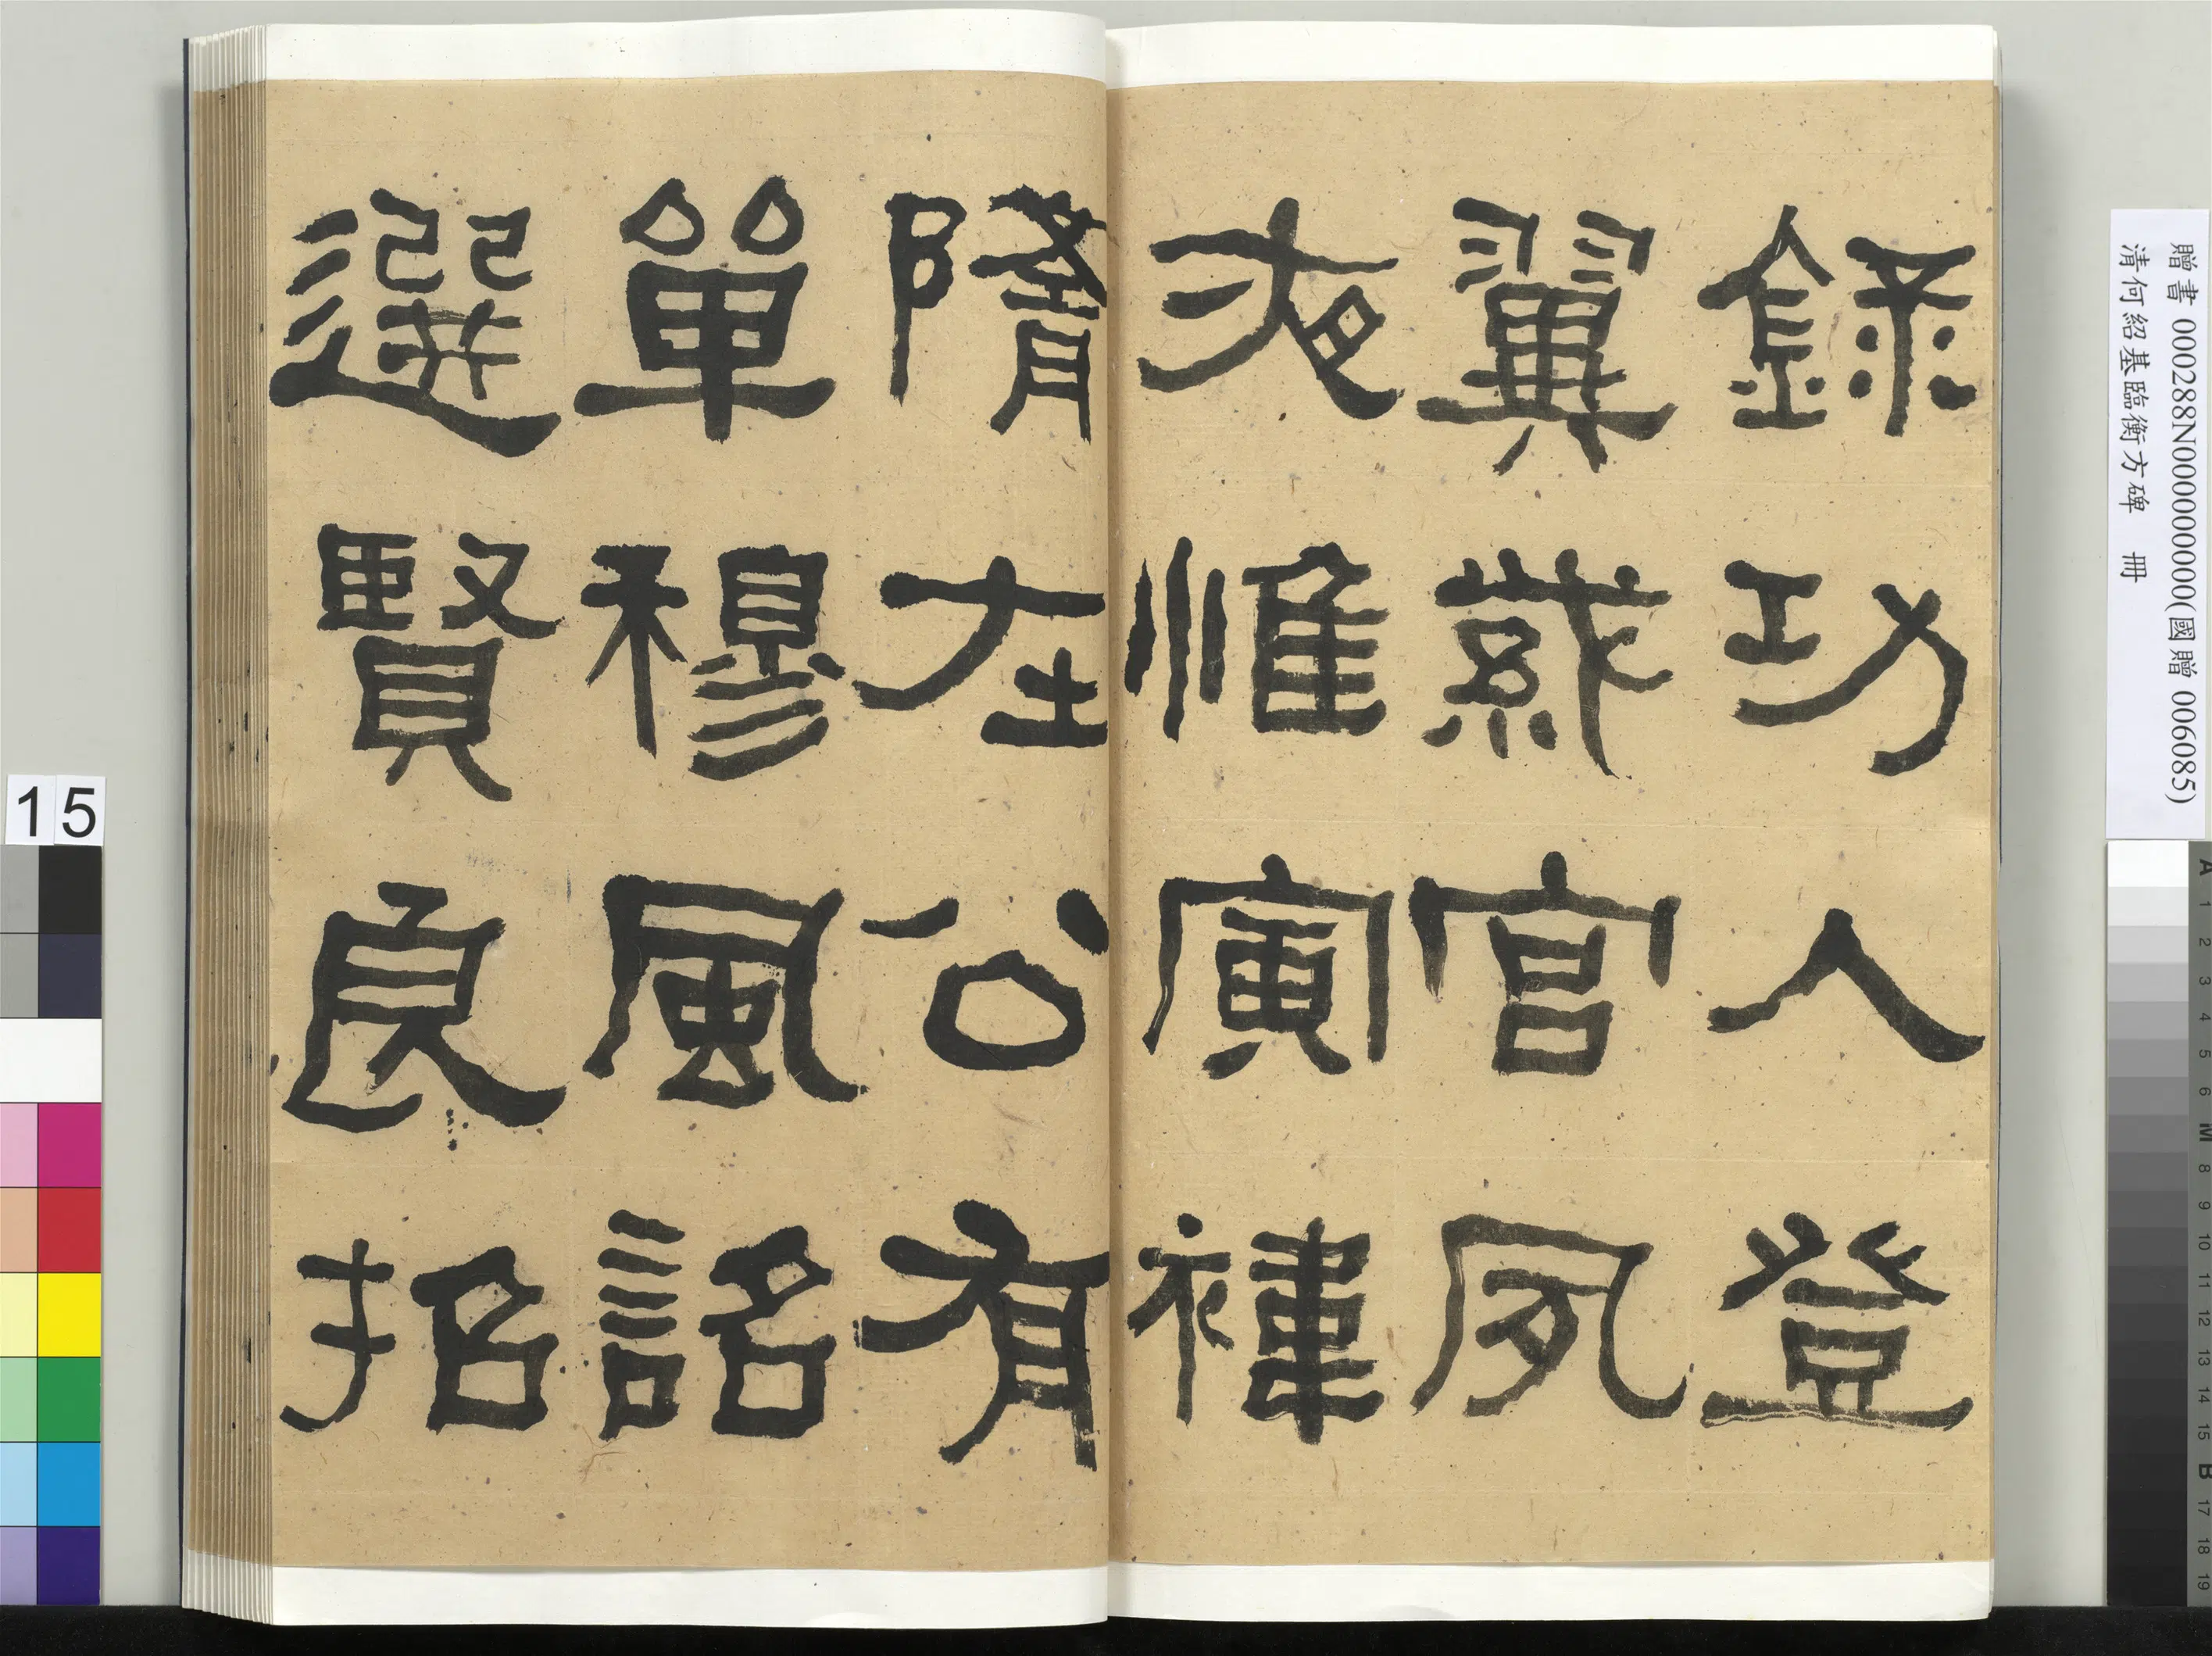 錄功入登
翼宮夙
夜惟寅褘
隋在公有
單穆風詔
選賢良招
贈書 000288N000000000(國贈 006085)
清何紹基臨衡方碑 冊
15
A 1 2 3 4 5 6 M 8 9 10 11 12 13 14 15 B 17 18 19